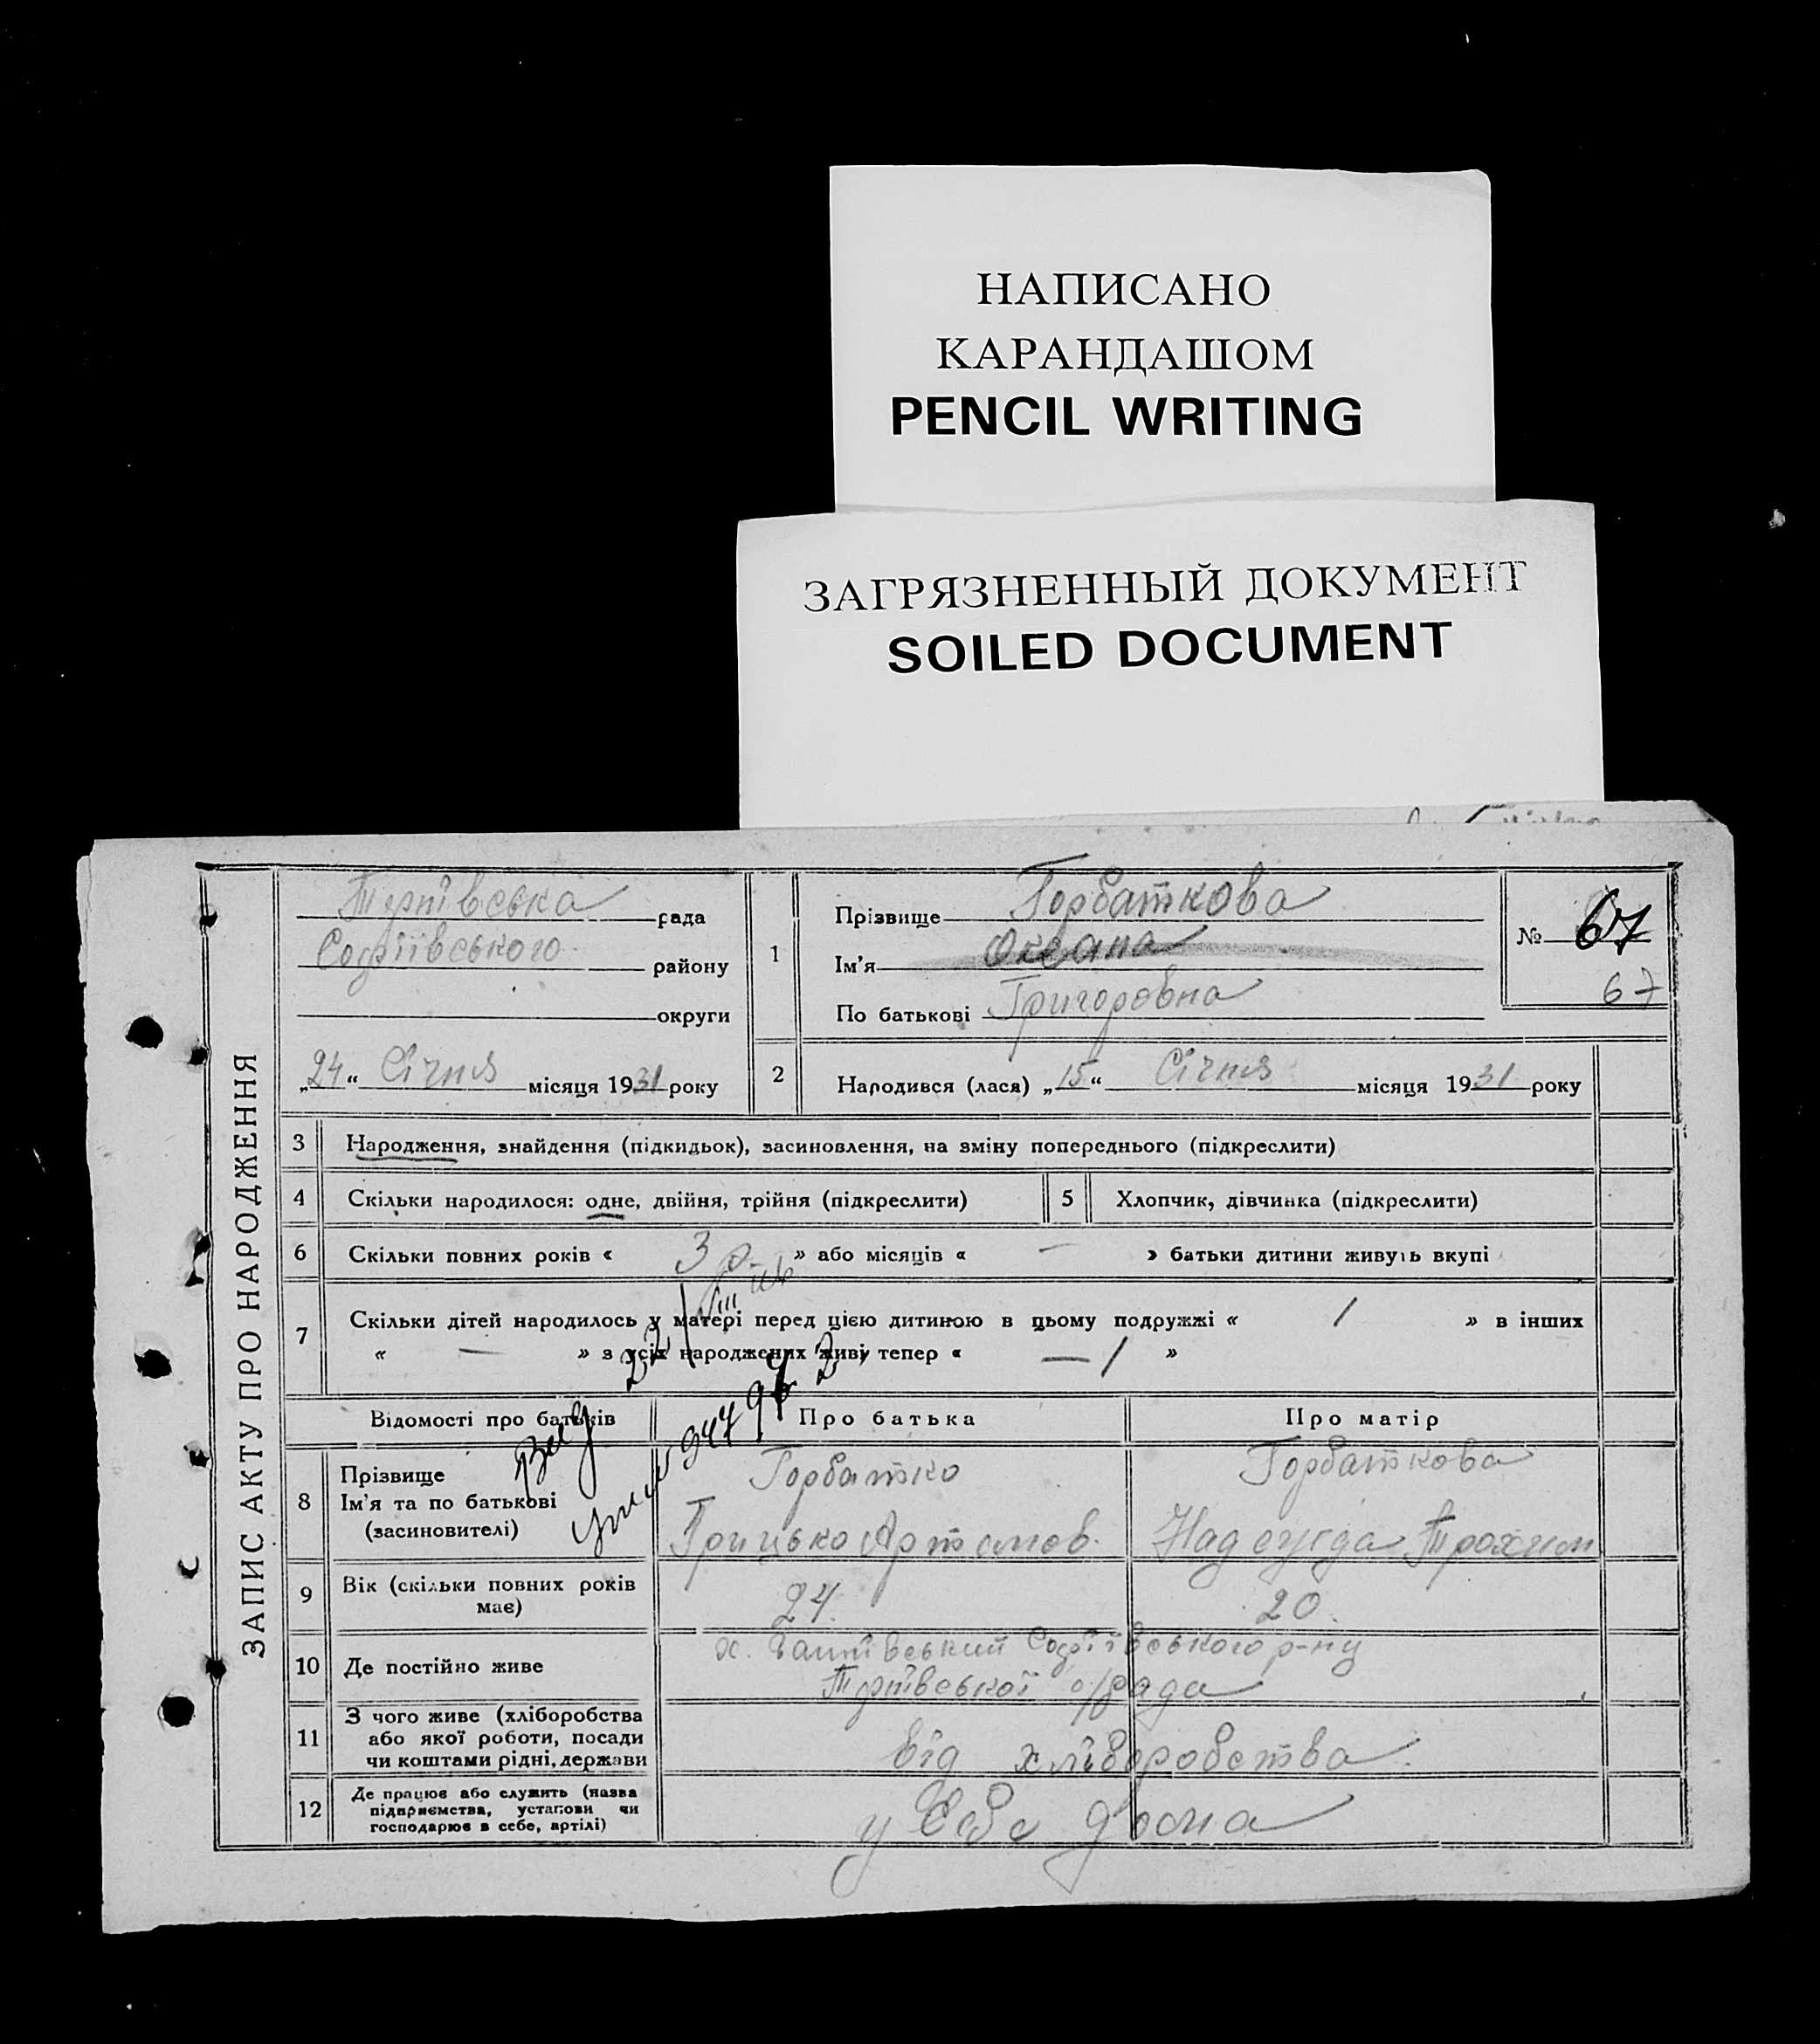 НАПИСАНО
КАРАНДАШОМ
PENCIL WRITING
ЗАГРЯЗНЕННЫЙ ДОКУМЕНТ
SOILED DOCUMENT
ЗАПИС АКТУ ПРО НАРОДЖЕННЯ
рада
Софіївського району
округи
„24“ Січня місяця 1931 року
1
Прізвище Горбаткова
Ім'я Оксана
По батькові Григоровна
№ 67
67
2 Народився (лася) „15“ Січня місяця 1931 року
3 Народження, знайдення (підкидьок), засиновлення, на зміну попереднього (підкреслити)
4 Скільки народилося: одне, двійня, трійня (підкреслити) 5 Хлопчик, дівчинка (підкреслити)
6 Скільки повних років « 3 р. » або місяців « — » батьки дитини живуть вкупі
7 Скільки дітей народилось у матері перед цією дитиною в цьому подружжі « 1 » в інших
« — » з усіх народжених живі тепер « — 1 »
Відомості про батьків Про батька Про матір
8 Прізвище Горбатко Горбаткова
Ім'я та по батькові
(засиновителі) Грицько Артемов. Надежда Трохим
9 Вік (скільки повних років
має) 24. 20.
10 Де постійно живе х. Софіївського р-ну
с/рада
11 З чого живе (хліборобства
або якої роботи, посади
чи коштами рідні, держави від хліборобства
12 Де працює або служить (назва
підприємства, установи чи
господарює в себе, артілі) у себе дома